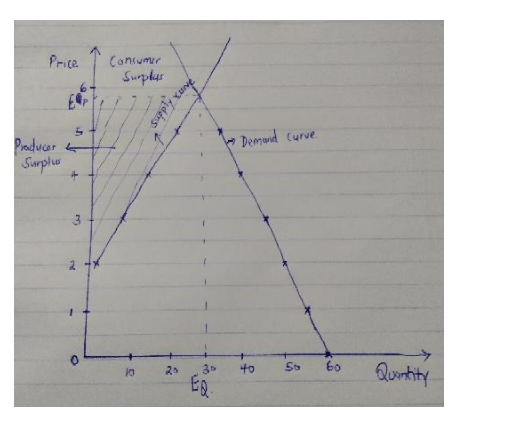 Price
Consumer
Surplus
6
Supply curve
5
Demand curve
Producer
Surplus
4
3
2
1
0
10 20 30 40 50 60
EQ
Quantity